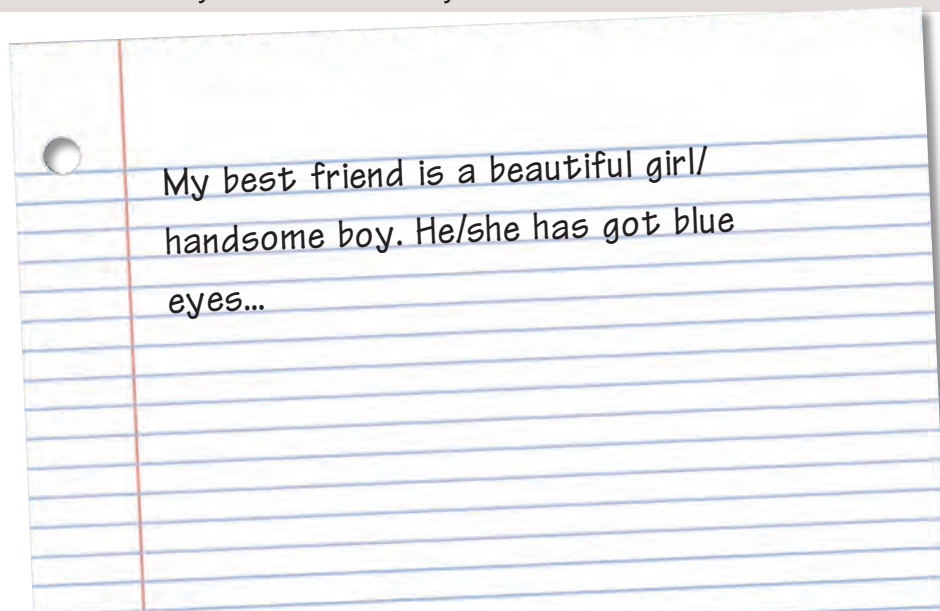 My best friend is a beautiful girl/
handsome boy. He/she has got blue
eyes...